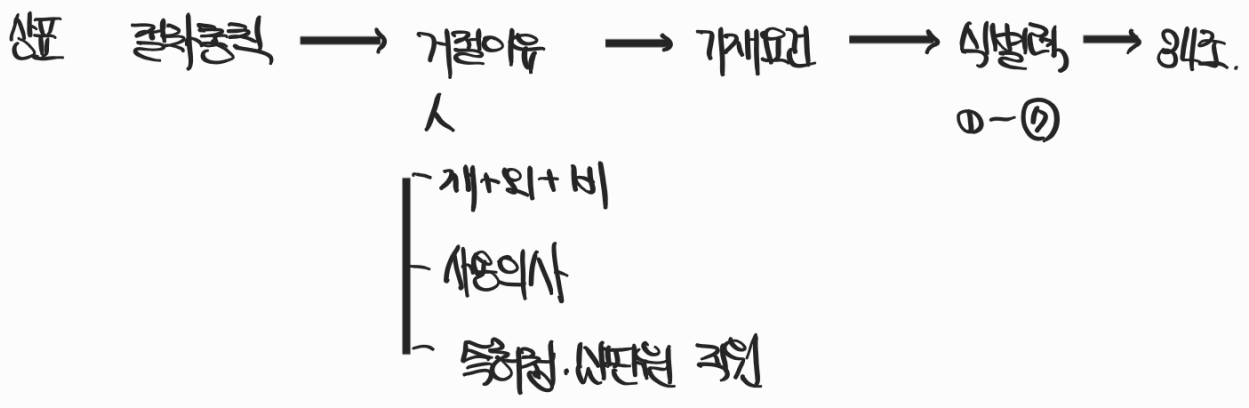 상표 절차총칙 → 거절이유 → 기재요건 → 식별력 → 34조.
人 ①~⑦
재+외+비
사용의사
특허청·심판원 직원